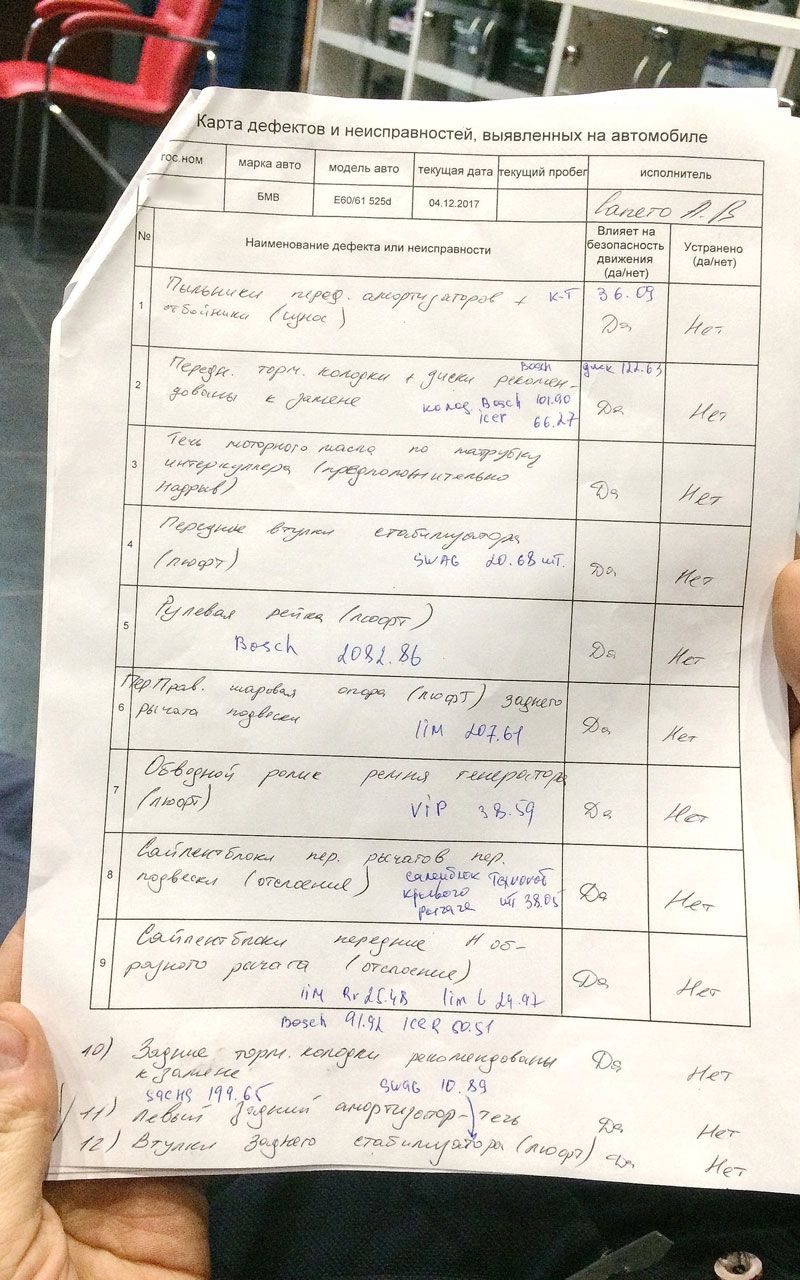 Карта дефектов и неисправностей, выявленных на автомобиле
гос.ном марка авто модель авто текущая дата текущий пробег исполнитель
БМВ E60/61 525d 04.12.2017 А. В
№ Наименование дефекта или неисправности Влияет на безопасность движения (да/нет) Устранено (да/нет)
1 Пыльники перед. амортизаторов + к-т 36.09
отбойники (износ) Да Нет
2 Передн. торм. колодки + диски рекомен- Bosch диск 122.63
дованы к замене колод. Bosch 101.90 Да Нет
icer 66.27
3 Течь моторного масла по патрубку
интеркуллера (предположительно
надрыв) Да Нет
4 Передние втулки стабилизатора
(люфт) SWAG 20.68 шт. Да Нет
5 Рулевая рейка (люфт)
Bosch 2082.86 Да Нет
6 Пер Прав. шаровая опора (люфт) заднего
рычага подвески Да Нет
lim 207.61
7 Обводной ролик ремня генератора
(люфт) ViP 38.59 Да Нет
8 Сайлентблоки пер. рычагов пер.
подвески (отслоение) Да Нет
рычага шт 38.05
9 Сайлентблоки передние Н об-
разного рычага (отслоение) Да Нет
lim R 25.48 lim L 24.97
Bosch 91.92 ICER 50.51
10) Задние торм. колодки рекомендованы Да Нет
к замене
SACHS 199.65 SWAG 10.89
11) Левый задний амортизатор-течь Да Нет
12) Втулки заднего стабилизатора (люфт) Да Нет